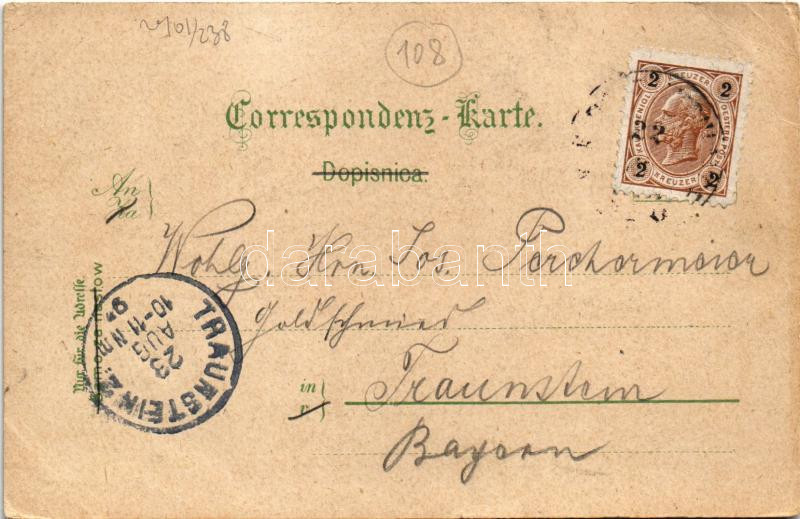 108
Correspondenz-Karte.
Dopisnica.
An
Za
Wohlg. Hrn Jos. Perchermeier
Goldschmied
in
Traunstein
Bayern
Nur für die Adresse
TRAUNSTEIN 2.
23
AUG
10-11 N
2 KREUZER 2
2 KREUZER 2
darabanth